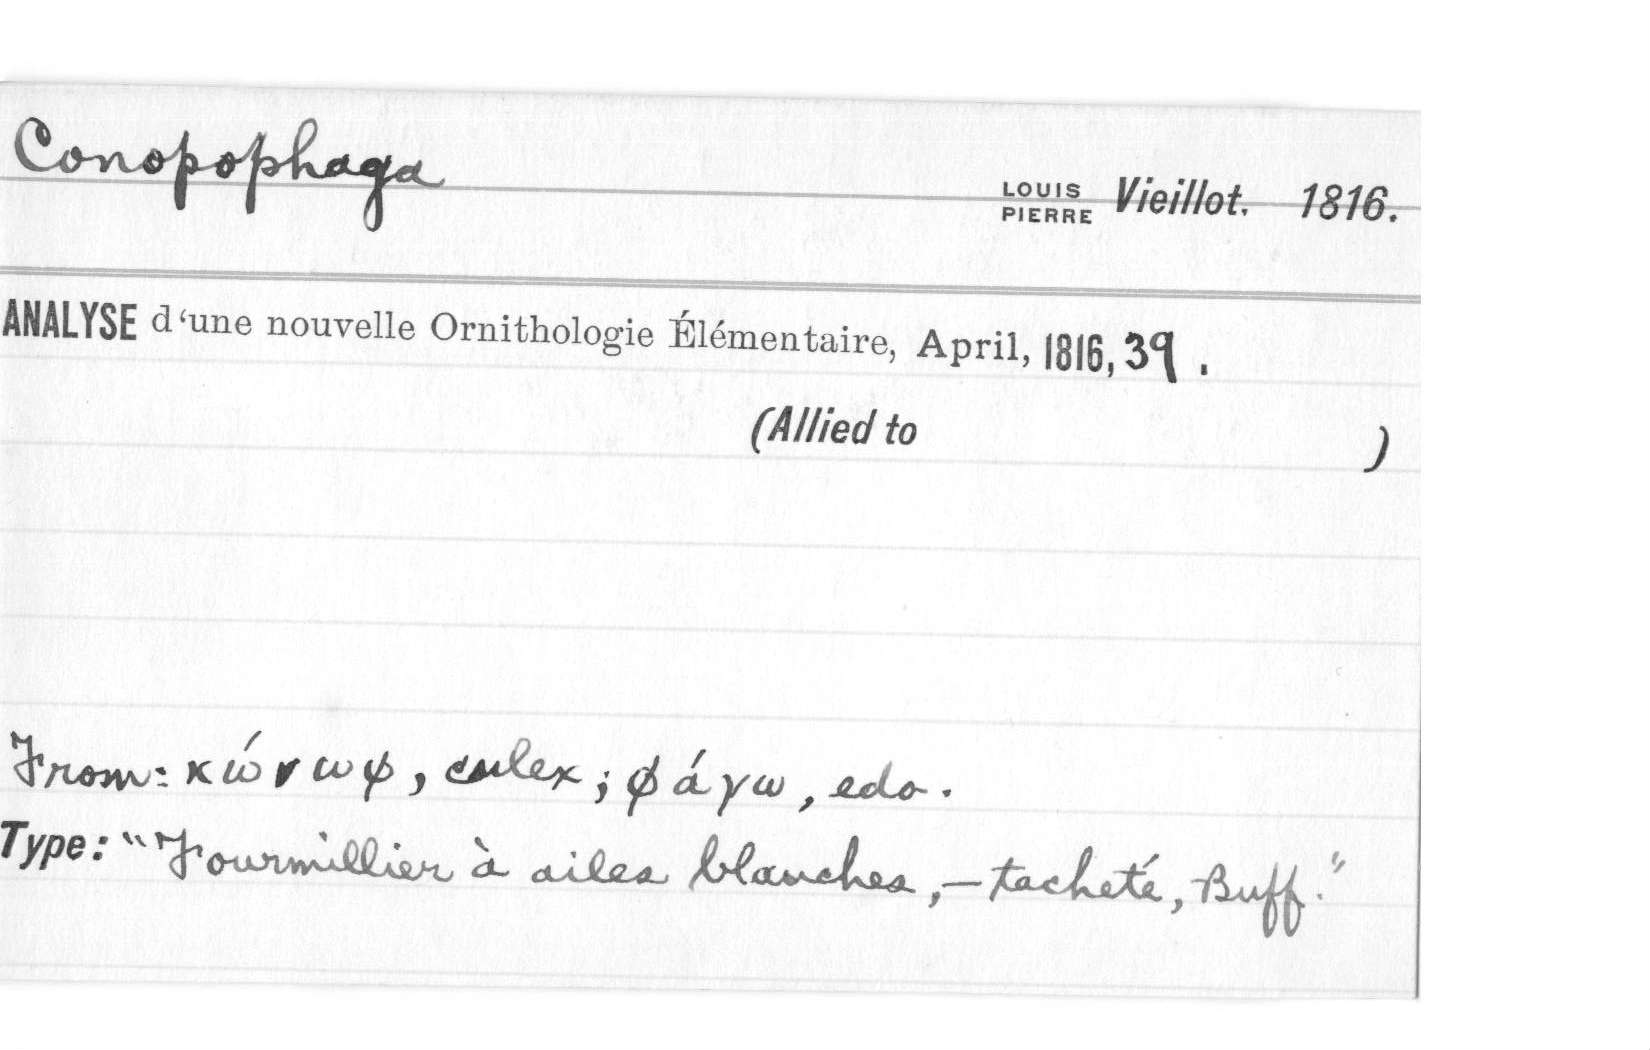 Conopophaga
LOUIS PIERRE Vieillot. 1816.
ANALYSE d'une nouvelle Ornithologie Élémentaire, April, 1816, 39.
(Allied to )
From: κώνωψ, culex; φάγω, edo.
Type: "Fourmillier à ailes blanches, — tacheté, Buff."